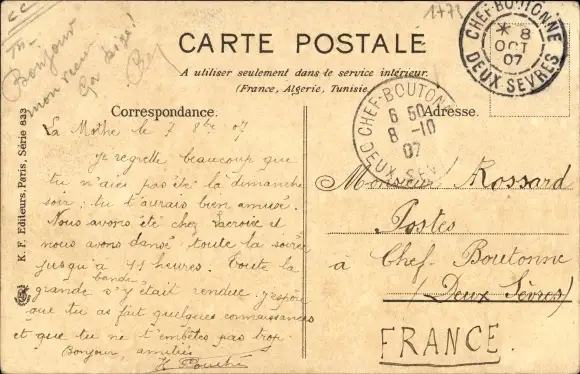 1778
Bonjour
mon vieux
ça bize!
CARTE POSTALE
A utiliser seulement dans le service intérieur.
(France, Algerie, Tunisie
CHEF-BOUTONNE
* 8
OCT
07
DEUX SEVRES
CHEF-BOUTONNE
6 50
8 -10
07
DEUX SEV
Correspondance.
Adresse.
K. F. Editeurs, Paris, Série 823
La Mothe le 7 8bre 07
Je regrette beaucoup que
tu n'aies pas été là dimanche
soir; tu t'aurais bien amusé.
Nous avons été chez Lacroix et
nous avons dansé toute la soirée
jusqu'à 11 heures. Toute la
grande bande s'y était rendue. J'espère
que tu as fait quelques connaissances
et que tu ne t'embêtes pas trop
Bonjour, amitiés
Monsieur Rossard
Postes
à Chef-Boutonne
(Deux Sèvres)
FRANCE.